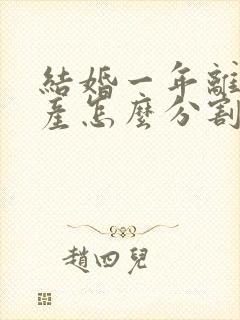 結婚一年離
產怎麼分割
趙四兒